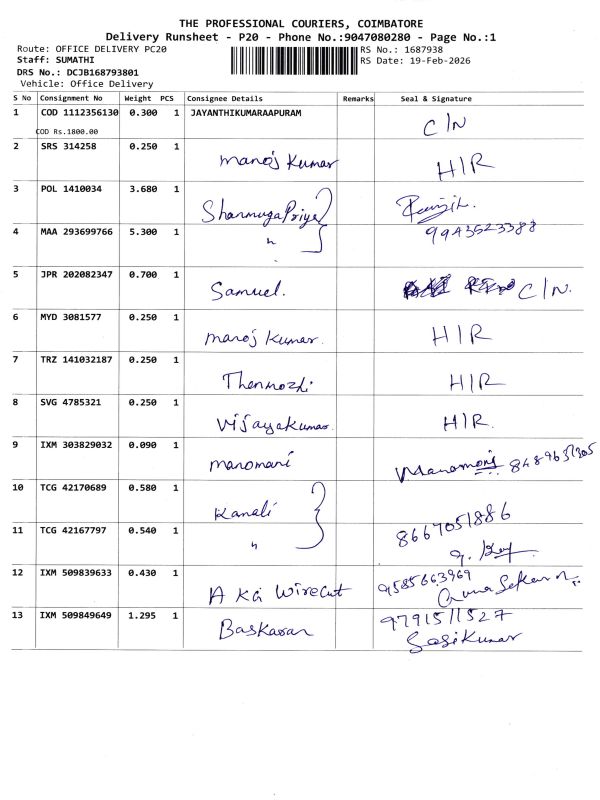 THE PROFESSIONAL COURIERS, COIMBATORE
Delivery Runsheet - P20 - Phone No.:9047080280 - Page No.:1
Route: OFFICE DELIVERY PC20 RS No.: 1687938
Staff: SUMATHI RS Date: 19-Feb-2026
DRS No.: DCJB168793801
Vehicle: Office Delivery
S No Consignment No Weight PCS Consignee Details Remarks Seal & Signature
1 COD 1112356130 0.300 1 JAYANTHIKUMARAAPURAM C/N
COD Rs.1800.00
2 SRS 314258 0.250 1 Manoj Kumar H/R
3 POL 1410034 3.680 1 ShanmugaPriya
4 MAA 293699766 5.300 1 " 9943523388
5 JPR 202082347 0.700 1 Samuel. C/N.
6 MYD 3081577 0.250 1 Manoj Kumar. H/R
7 TRZ 141032187 0.250 1 Thenmozhi H/R
8 SVG 4785321 0.250 1 Vijayakumar H/R.
9 IXM 303829032 0.090 1 manomani Manomani
10 TCG 42170689 0.580 1 8667051886
11 TCG 42167797 0.540 1 "
12 IXM 509839633 0.430 1 A Ka Wirecut 9585663969
13 IXM 509849649 1.295 1 Baskaran 9791511527
SasiKumar